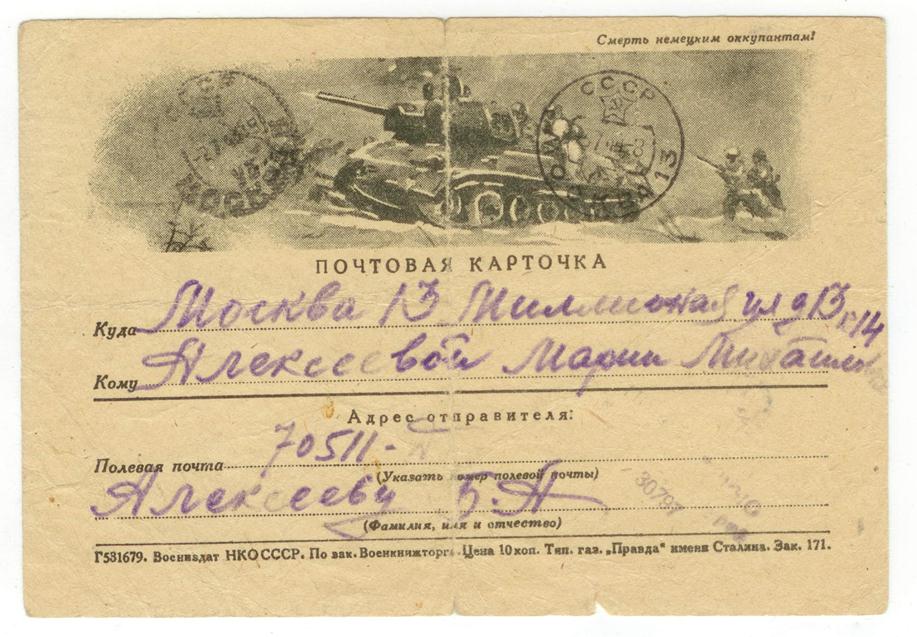 Смерть немецким оккупантам!
СССР
МОСКВА
ПОЧТОВАЯ КАРТОЧКА
Куда Москва 13 Миллионая ул д 13 к 14
Кому Алексеевой Марии
Адрес отправителя:
Полевая почта 70511-
(Указать номер полевой почты)
Алексееву Б. А
(Фамилия, имя и отчество)
30797
Г581679. Воениздат НКО СССР. По зак. Военкнижторг. Цена 10 коп. Тип. газ. „Правда“ имени Сталина. Зак. 171.